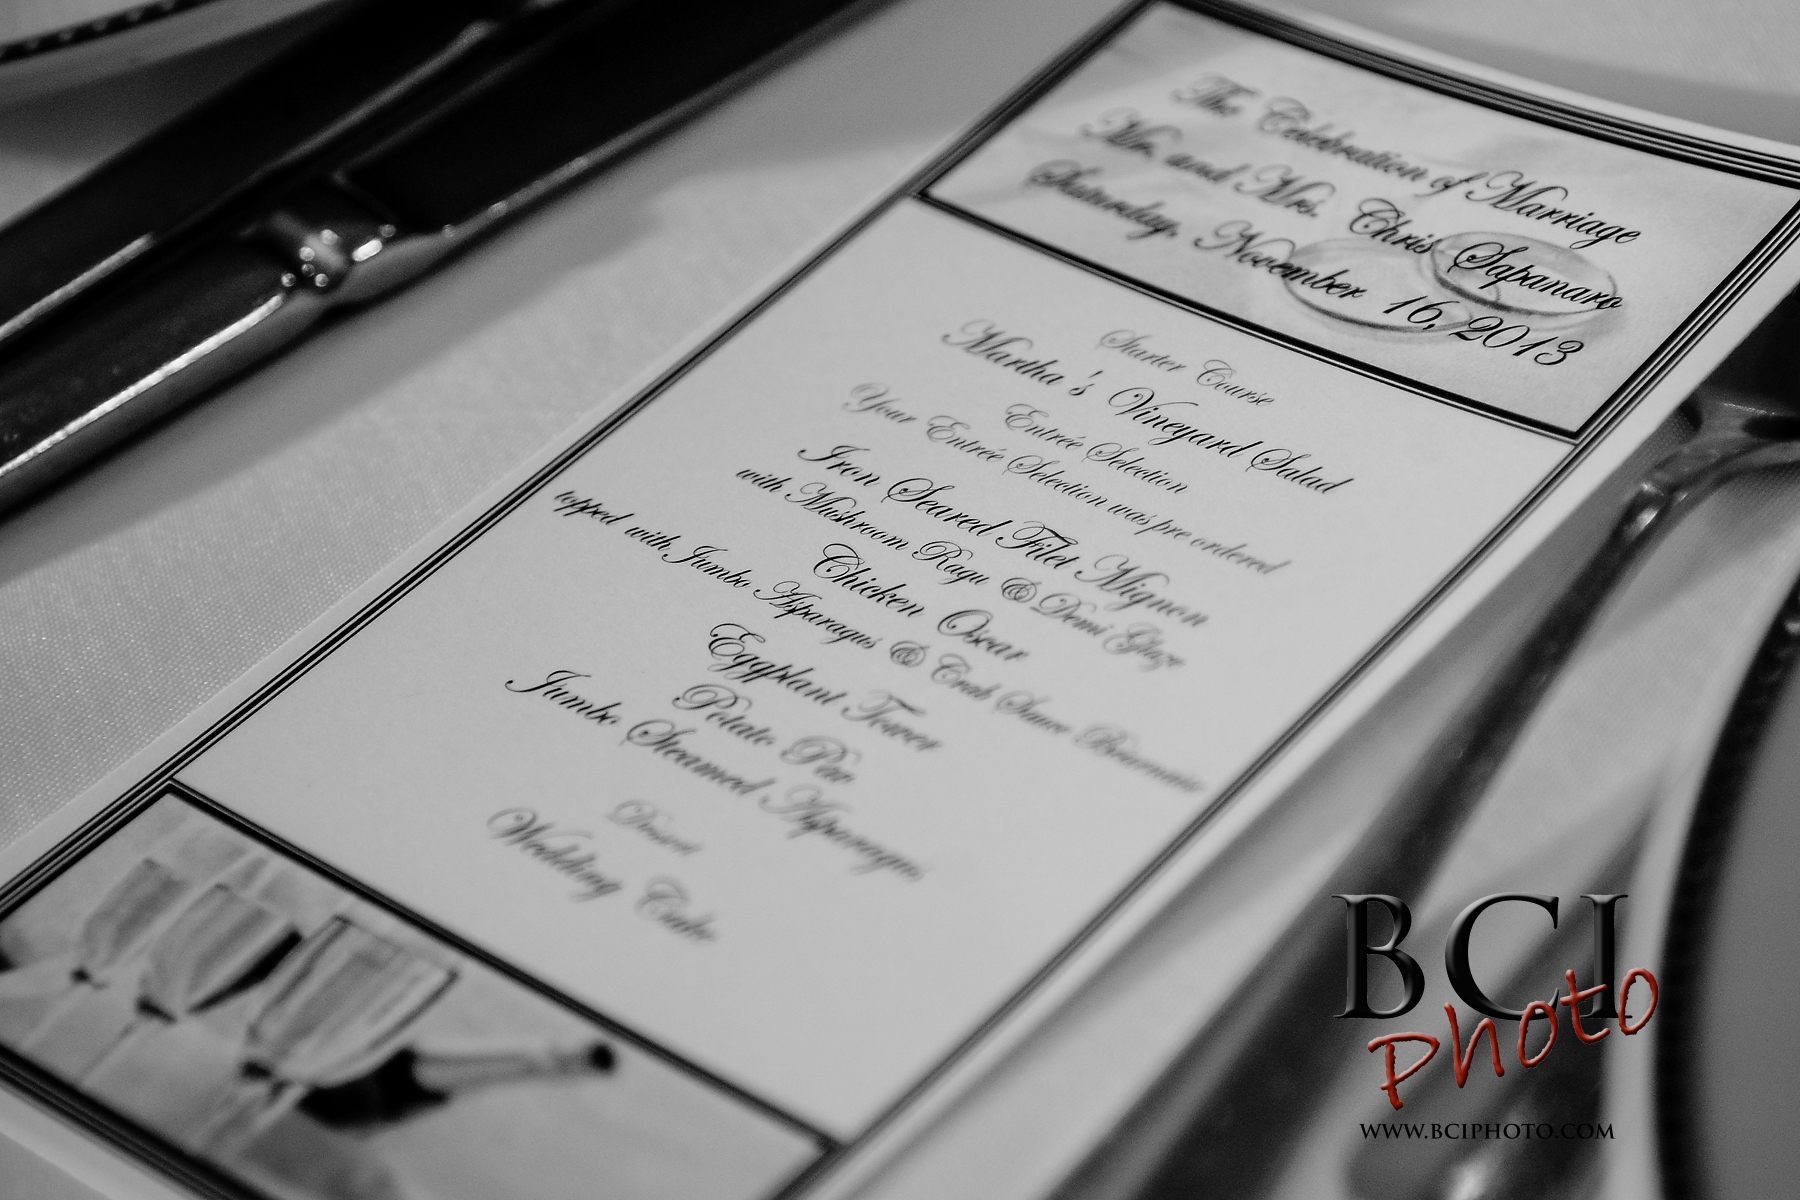 The Celebration of Marriage
Mr. and Mrs. Chris Sapanaro
Saturday, November 16, 2013
Starter Course
Martha's Vineyard Salad
Entrée Selection
Your Entrée Selection was pre ordered
Iron Seared Filet Mignon
with Mushroom Ragu & Demi Glaze
Chicken Oscar
topped with Jumbo Asparagus & Crab Sauce Béarnaise
Eggplant Tower
Potato Pav
Jumbo Steamed Asparagus
Dessert
Wedding Cake
BCI
Photo
WWW.BCIPHOTO.COM